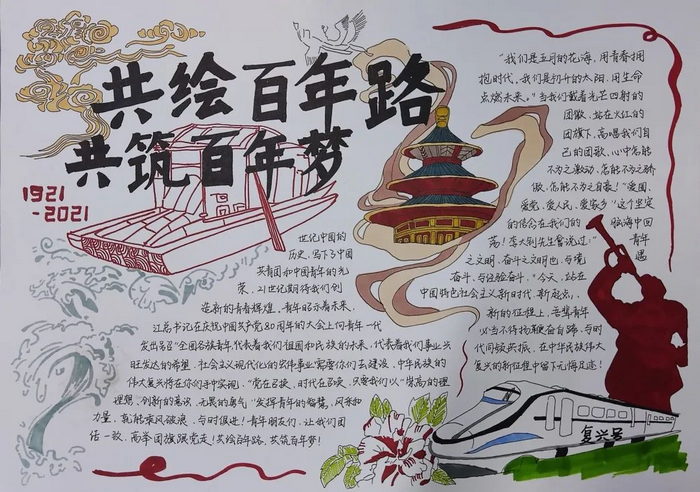 共绘百年路
共筑百年梦
1921
-2021
世纪中国的
历史,写下了中国
共青团和中国青年的光
荣,21世纪期待我们创
造新的青春辉煌。青年昭示着未来,
江总书记在庆祝中国共产党80周年的大会上向青年一代
发出号召“全国各族青年代表着我们祖国和民族的未来,代表着我们事业兴
旺发达的希望,社会主义现代化的宏伟事业需要你们去建设,中华民族的
伟大复兴将在你们手中实现。”党在召唤,时代在召唤,只要我们以“崇高的理
理想、创新的意识、无畏的勇气”发挥青年的智慧、风采和
力量,就能乘风破浪,与时俱进!青年朋友们,让我们团
结一致,高举团旗跟党走!共绘百年路,共筑百年梦!
“我们是五月的花海,用青春拥
抱时代,我们是初升的太阳,用生命
点燃未来。”当我们戴着光芒四射的
团徽,站在火红的
团旗下,高唱我们自
己的团歌,心中怎能
不为之激动,怎能不为之骄
傲,怎能不为之自豪!“爱国、
爱党、爱人民、爱家乡”这个坚定
的信念在我们的脑海中回
荡!李大钊先生曾说过:“青年
之文明,奋斗之文明也,与境遇
奋斗,与经验奋斗。”今天,站在
中国特色社会主义新时代
新的征程上,吾辈青年
以当不待扬鞭奋自蹄,与时
代同频共振,在中华民族伟大
复兴的新征程中留下无悔足迹!
复兴号